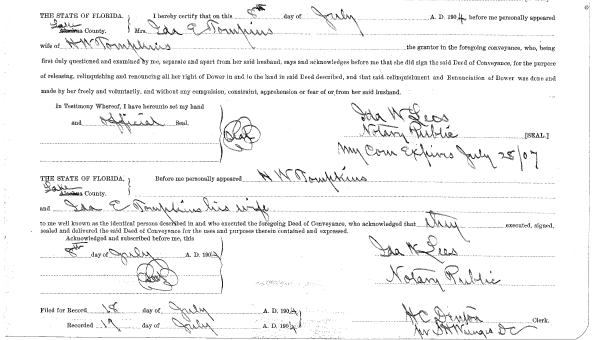 THE STATE OF FLORIDA, I hereby certify that on this 8th day of July A. D. 1904, before me personally appeared
Lake
Alachua County. Mrs. Ida E Tompkins
wife of H W Tompkins the grantor in the foregoing conveyance, who, being
first duly questioned and examined by me, separate and apart from her said husband, says and acknowledges before me that she did sign the said Deed of Conveyance, for the purpose
of releasing, relinquishing and renouncing all her right of Dower in and to the land in said Deed described, and that said relinquishment and Renunciation of Dower was done and
made by her freely and voluntarily, and without any compulsion, constraint, apprehension or fear of or from her said husband.
In Testimony Whereof, I have hereunto set my hand
and official Seal.
Ida W Lees
Notary Public
[SEAL]
My Com Expires July 28/07
THE STATE OF FLORIDA, Before me personally appeared H W Tompkins
Lake
Alachua County.
and Ida E. Tompkins his wife
to me well known as the identical persons described in and who executed the foregoing Deed of Conveyance, who acknowledged that they executed, signed,
sealed and delivered the said Deed of Conveyance for the uses and purposes therein contained and expressed.
Acknowledged and subscribed before me, this
8th day of July A. D. 1904
Ida W Lees
Notary Public
Filed for Record 18 day of July A. D. 1904
H C Denton Clerk.
Recorded 19 day of July A. D. 1904
D C